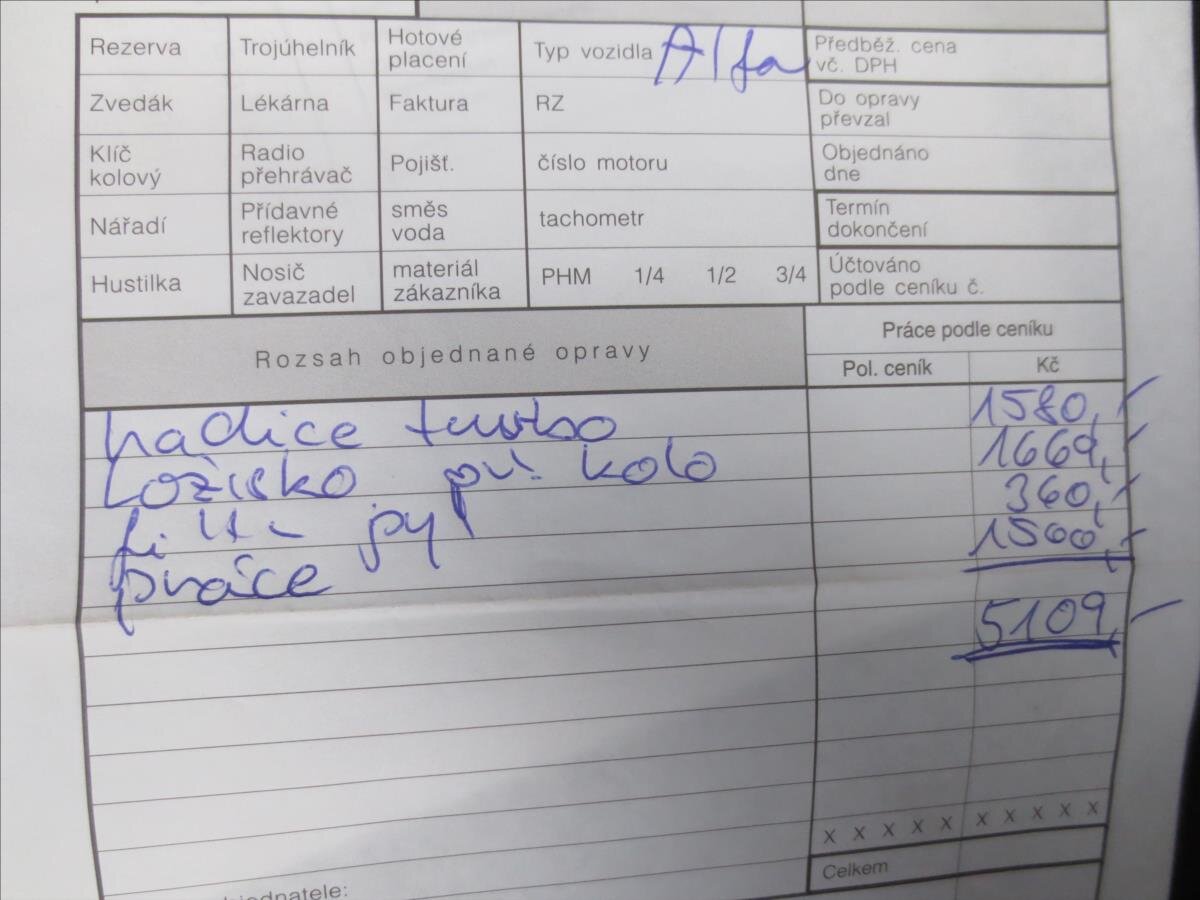 Rezerva Trojúhelník Hotové placení Typ vozidla Alfa Předběž. cena vč. DPH
Zvedák Lékárna Faktura RZ Do opravy převzal
Klíč kolový Radio přehrávač Pojišť. číslo motoru Objednáno dne
Nářadí Přídavné reflektory směs voda tachometr Termín dokončení
Hustilka Nosič zavazadel materiál zákazníka PHM 1/4 1/2 3/4 Účtováno podle ceníku č.
Rozsah objednané opravy Práce podle ceníku
Pol. ceník Kč
hadice turbo 1580,-
Ložisko př. kolo 1669,-
filtr pyl 360,-
práce 1500,-
5109,-
X X X X X X X X X X
Celkem
bjednatele: